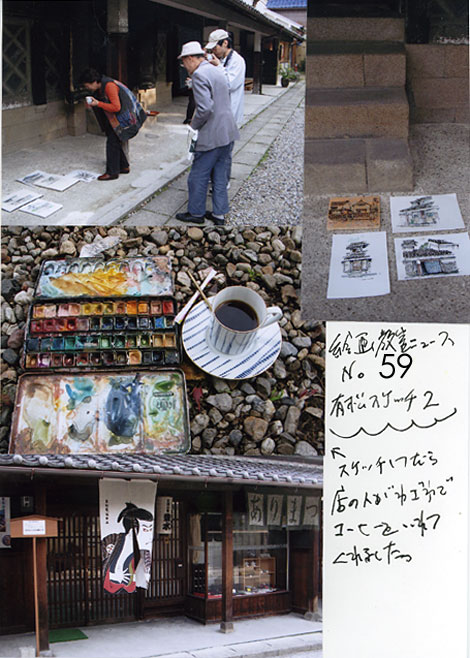 ありまつ
絵画教室ニュース
No 59
有松スケッチ2
スケッチしてたら
店の人が
コーヒーをいれて
くれました。